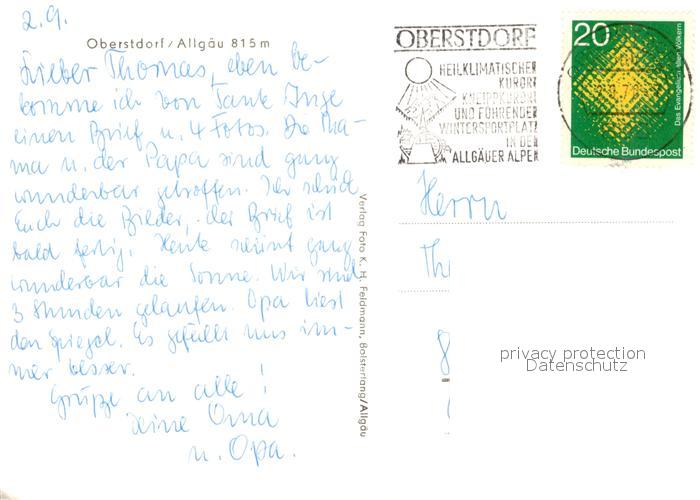 2.9.
Oberstdorf/Allgäu 815m
Lieber Thomas, eben be-
komme ich von Tante Inge
einen Brief u. 4 Fotos. Die Ma-
ma u. der Papa sind ganz
wunderbar getroffen. Ich schick
Euch die Bilder, der Brief ist
bald fertig. Heute scheint ganz
wunderbar die Sonne. Wir sind
3 Stunden gelaufen. Opa liest
den Spiegel. Es gefällt uns im-
mer besser.
Grüße an alle!
Deine Oma
u. Opa.
Verlag Foto K. H. Feldmann, Bolsterlang/Allgäu
OBERSTDORF
HEILKLIMATISCHER
KURORT
KNEIPPKURORT
UND FÜHRENDER
WINTERSPORTPLATZ
IN DEN
ALLGÄUER ALPEN
20
Das Evangelium allen Völkern
Deutsche Bundespost
Herrn
Th
8
privacy protection
Datenschutz